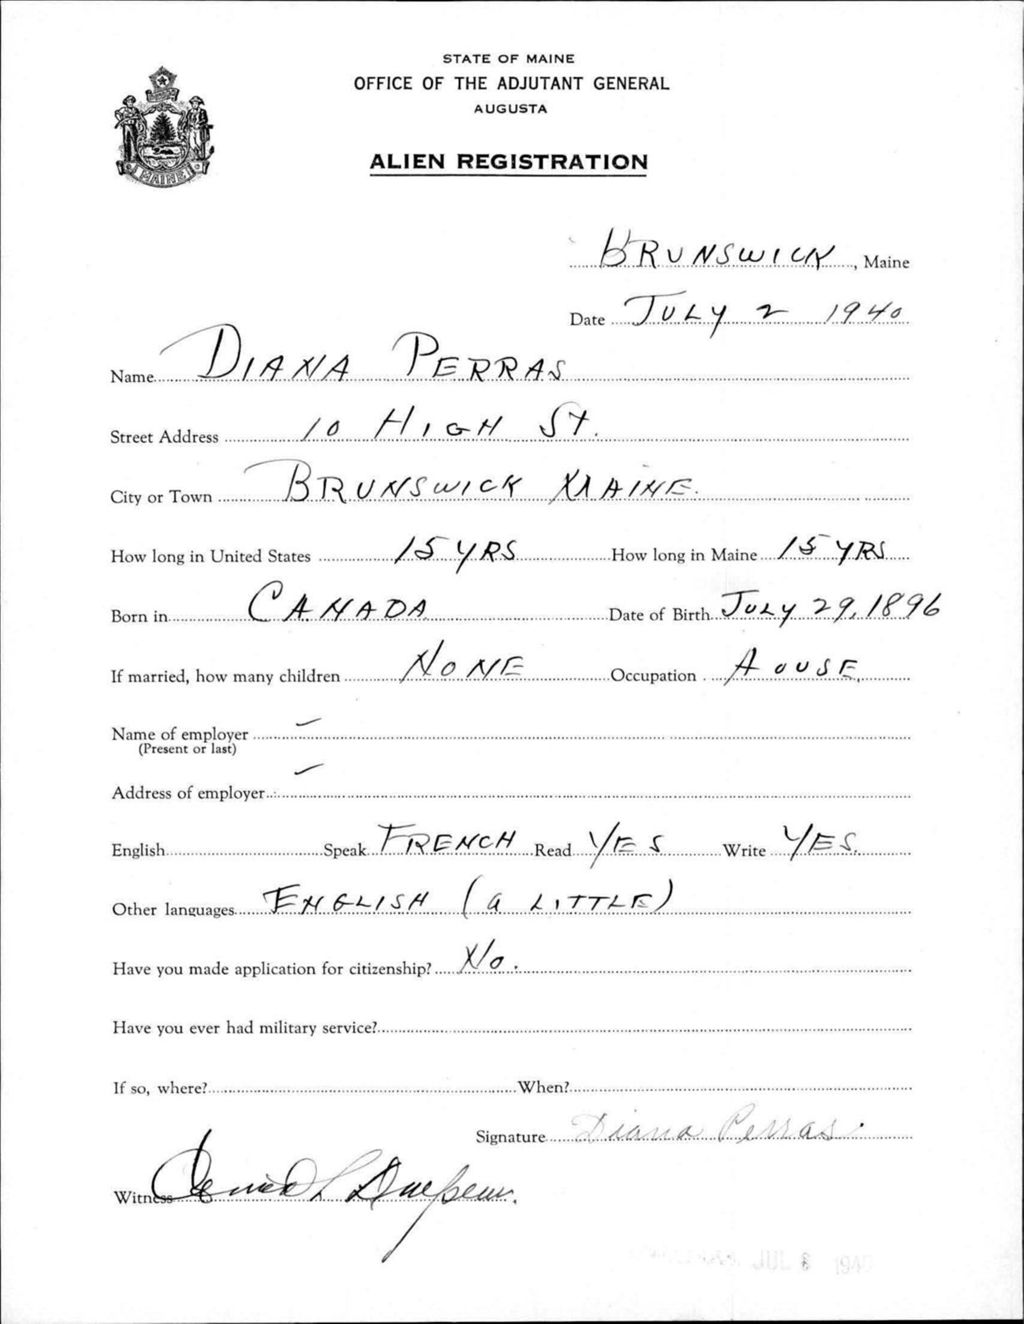 STATE OF MAINE
OFFICE OF THE ADJUTANT GENERAL
AUGUSTA
ALIEN REGISTRATION
MAINE
BRUNSWICK, Maine
Date JULY 2 1940
Name DIANA PERRAS
Street Address 10 HIGH St.
City or Town BRUNSWICK MAINE.
How long in United States 15 YRS How long in Maine 15 YRS
Born in CANADA Date of Birth JULY 29, 1896
If married, how many children NONE Occupation HOUSE.
Name of employer
(Present or last)
Address of employer
English Speak FRENCH Read YES Write YES.
Other languages ENGLISH (a LITTLE)
Have you made application for citizenship? No.
Have you ever had military service?
If so, where? When?
Signature Diana Perras.
Witness
JUL 8 1940